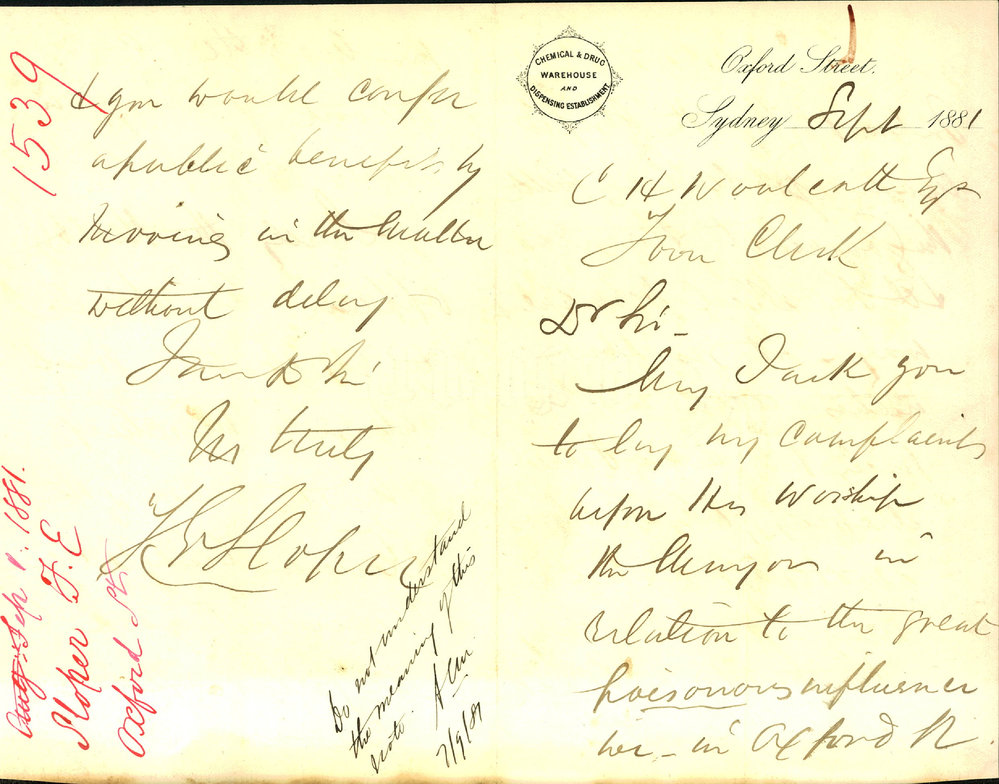 CHEMICAL & DRUG
WAREHOUSE
AND
DISPENSING ESTABLISHMENT
Oxford Street.
Sydney Sept 1881
C H Woolcott Esq
Town Clerk
Dr Sir -
May I ask you
to lay my complaints
before His Worship
the Mayor in
relation to the great
poisonous influence
here - in Oxford St
& you would confer
a public benefit by
moving in the matter
without delay
I am D Sir
Yrs truly
F E Sloper
Do not understand
the meaning of this
note.
7/9/81
1539
Sep 1881.
Sloper F. E
Oxford St